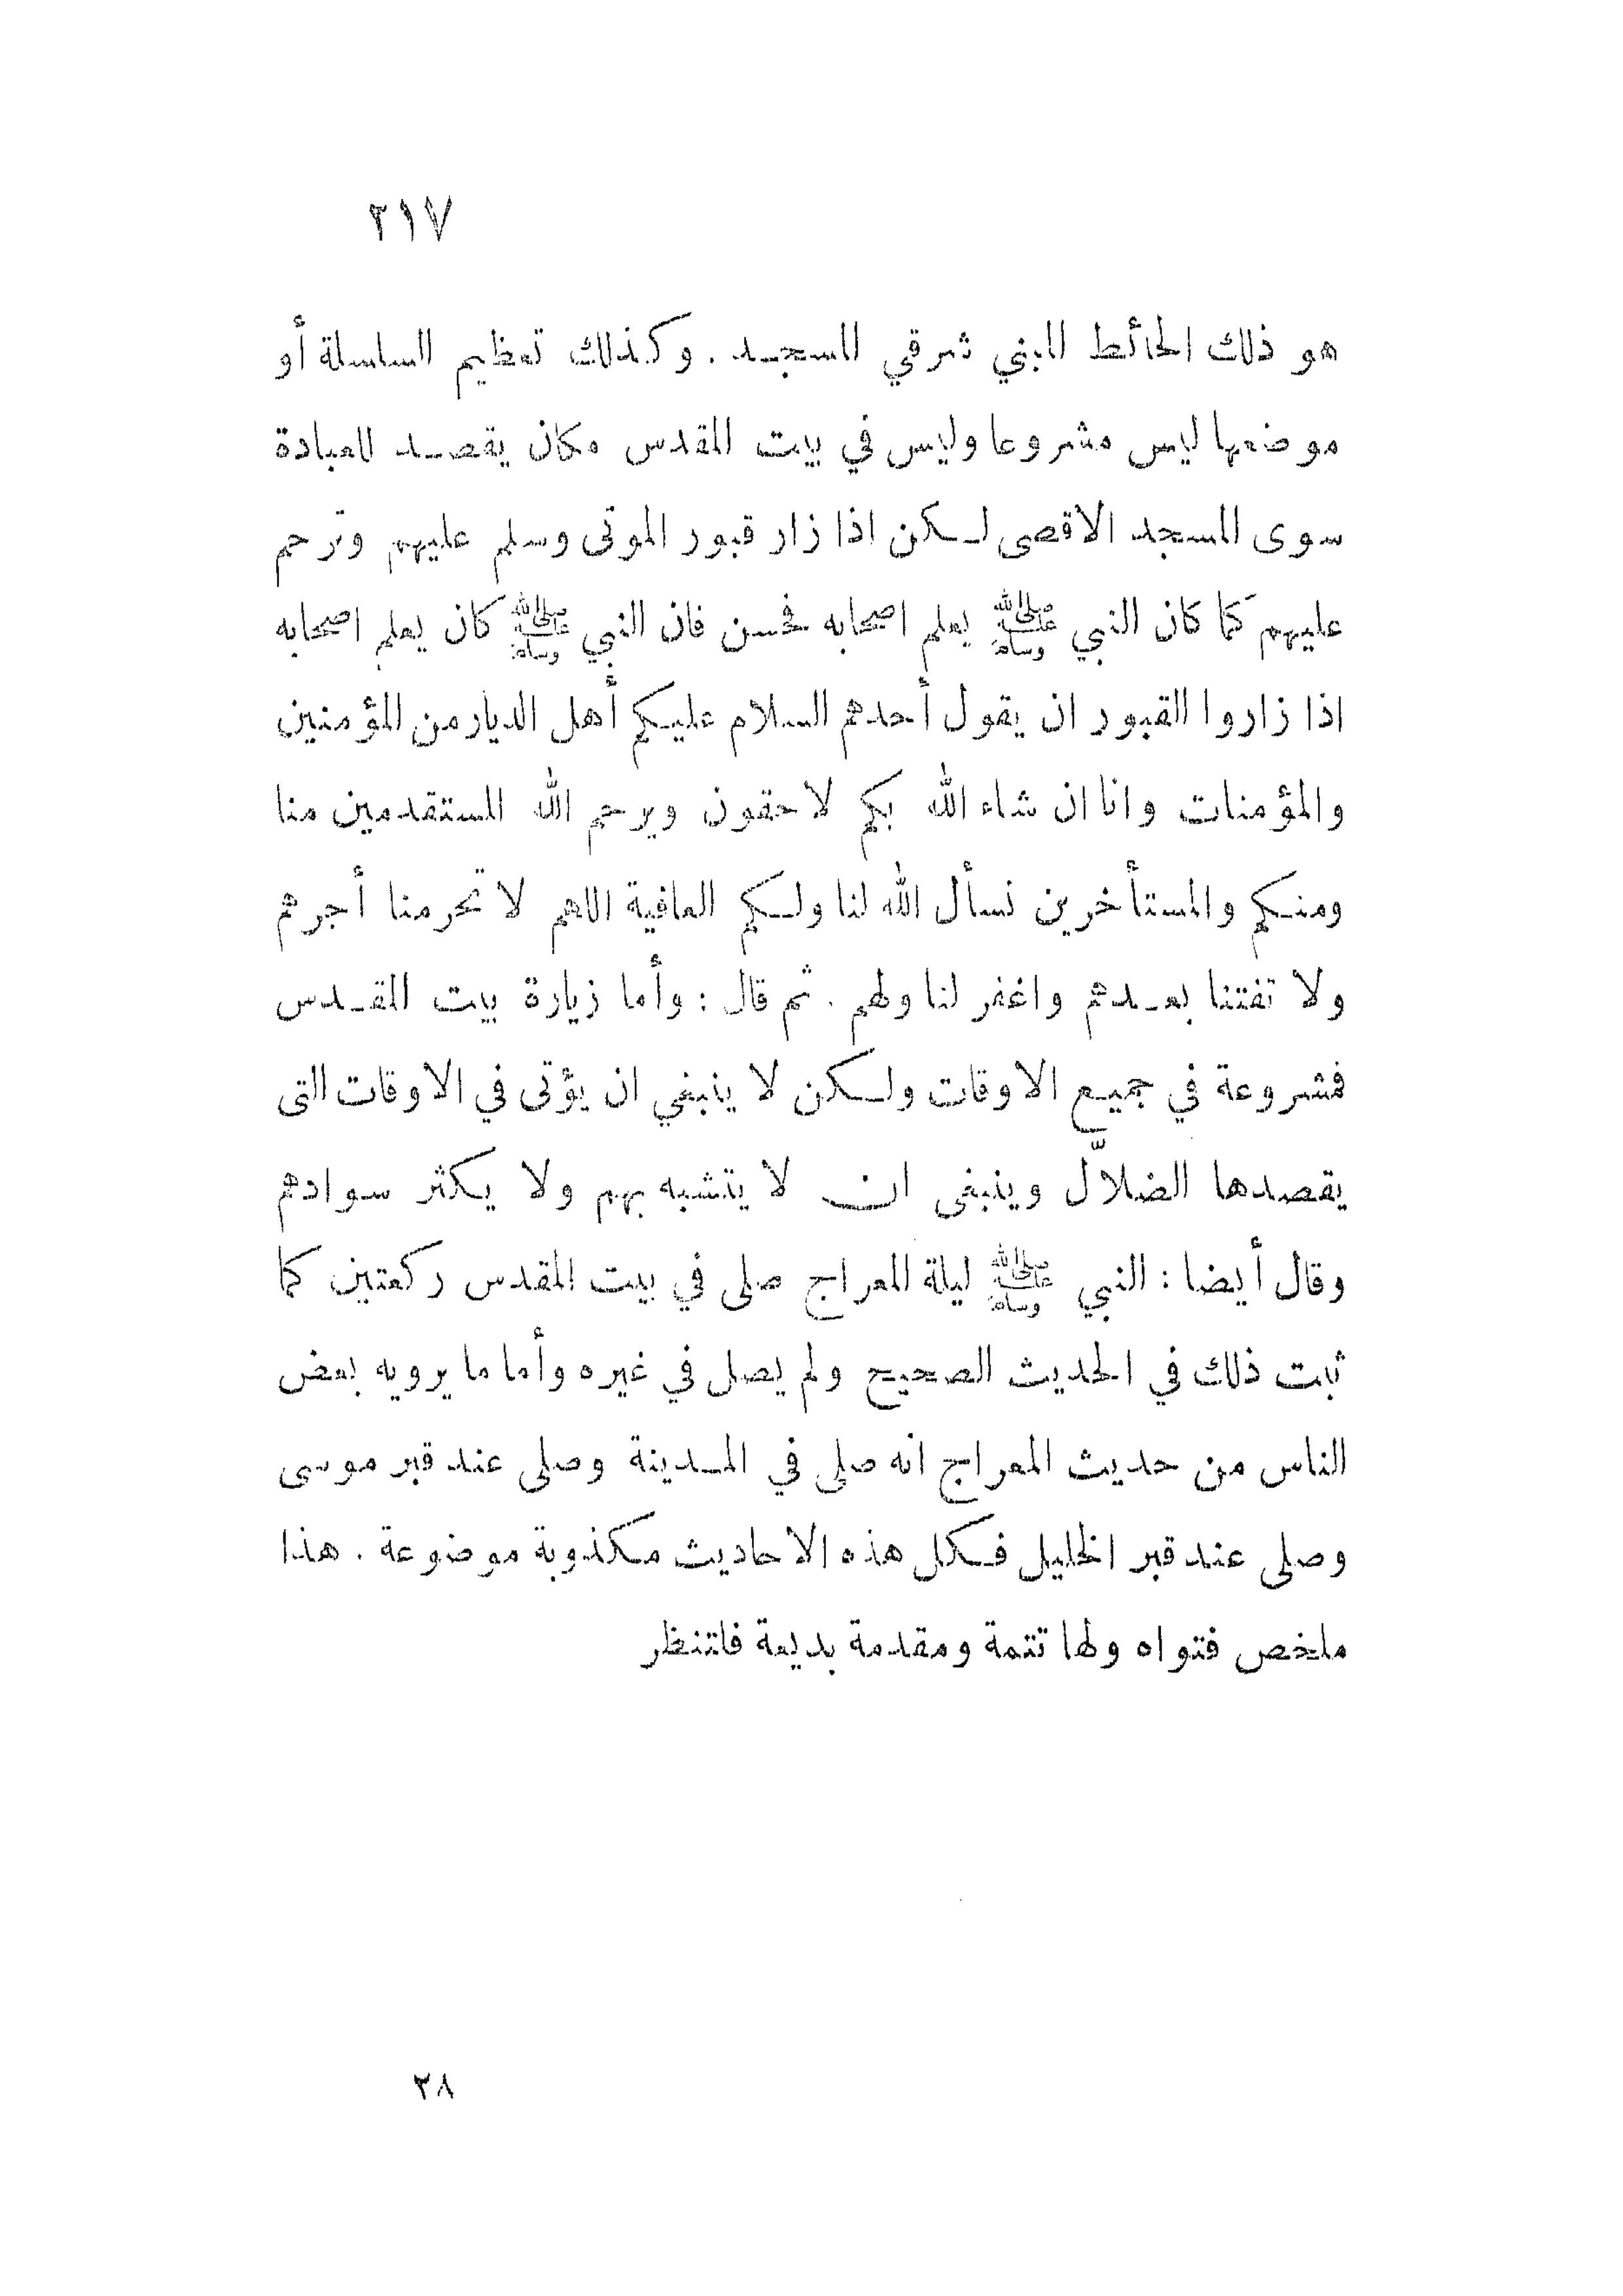 ٢١٧
هو ذلك الحائط المبني شرقي المسجد . وكذلك تعظيم السلسلة أو
موضعها ليس مشروعا وليس في بيت المقدس مكان يقصد للعبادة
سوى المسجد الاقصى لكن اذا زار قبور الموتى وسلم عليهم وترحم
عليهم كما كان النبي ﷺ يعلم اصحابه فحسن فان النبي ﷺ كان يعلم اصحابه
اذا زاروا القبور ان يقول أحدهم السلام عليكم أهل الديار من المؤمنين
والمؤمنات وانا ان شاء الله بكم لاحقون ويرحم الله المستقدمين منا
ومنكم والمستأخرين نسأل الله لنا ولكم العافية اللهم لا تحرمنا أجرهم
ولا تفتنا بعدهم واغفر لنا ولهم . ثم قال : وأما زيارة بيت المقدس
فمشروعة في جميع الاوقات ولكن لا ينبغي ان يؤتى في الاوقات التى
يقصدها الضلاّل وينبغى ان لا يتشبه بهم ولا يكثر سوادهم
وقال أيضا : النبي ﷺ ليلة المعراج صلى في بيت المقدس ركعتين كما
ثبت ذلك في الحديث الصحيح ولم يصل في غيره وأما ما يرويه بعض
الناس من حديث المعراج انه صلى في المدينة وصلى عند قبر موسى
وصلى عند قبر الخليل فكل هذه الاحاديث مكذوبة موضوعة . هذا
ملخص فتواه ولها تتمة ومقدمة بديعة فلتنظر
٢٨